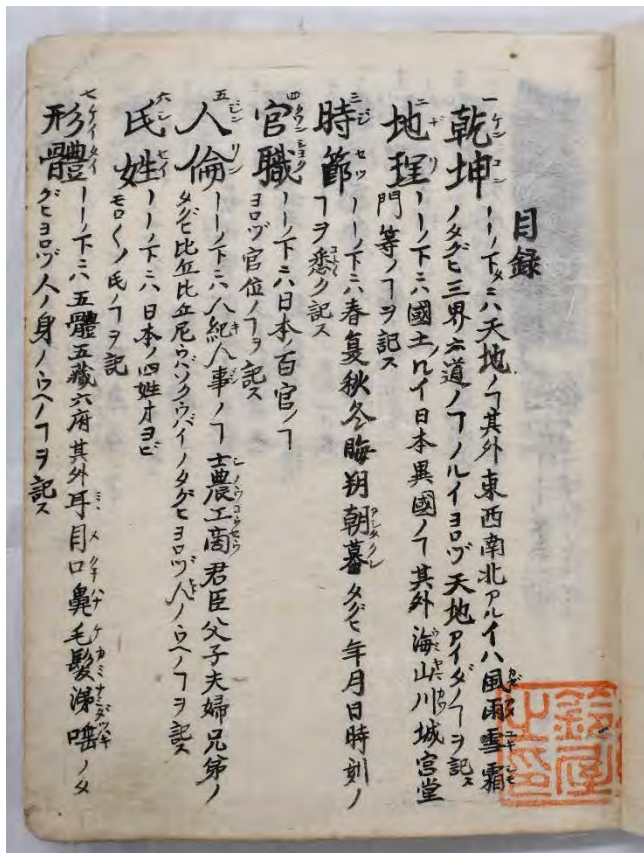 目録
一乾坤 ーーノ下ニハ天地ノヿ其外東西南北アルイハ風雨雪霜
ノタグヒ三界六道ノヿノルイヨロヅ天地アイダノヿヲ記ス
二地理 ーーノ下ニハ國土ノルイ日本異國ノヿ其外海山川城宮堂
門等ノヿヲ記ス
三時節 ーーノ下ニハ春夏秋冬晦朔朝暮タグヒ年月日時刻ノ
ヿヲ悉ク記ス
四官職 ーーノ下ニハ日本ノ百官ノヿ
ヨロヅ官位ノヿヲ記ス
五人倫 ーーノ下ニハ人紀人事ノヿ士農工商君臣父子夫婦兄弟ノ
タグヒ比丘比丘尼ウバソクウバイノタグヒヨロヅ人ノウヘノヿヲ記ス
六氏姓 ーーノ下ニハ日本ノ四姓オヨビ
モロ〱ノ氏ノヿヲ記
七形體 ーーノ下ニハ五體五藏六府其外耳目口鼻毛髮涕唾ノタ
グヒヨロヅ人ノ身ノウヘノヿヲ記ス